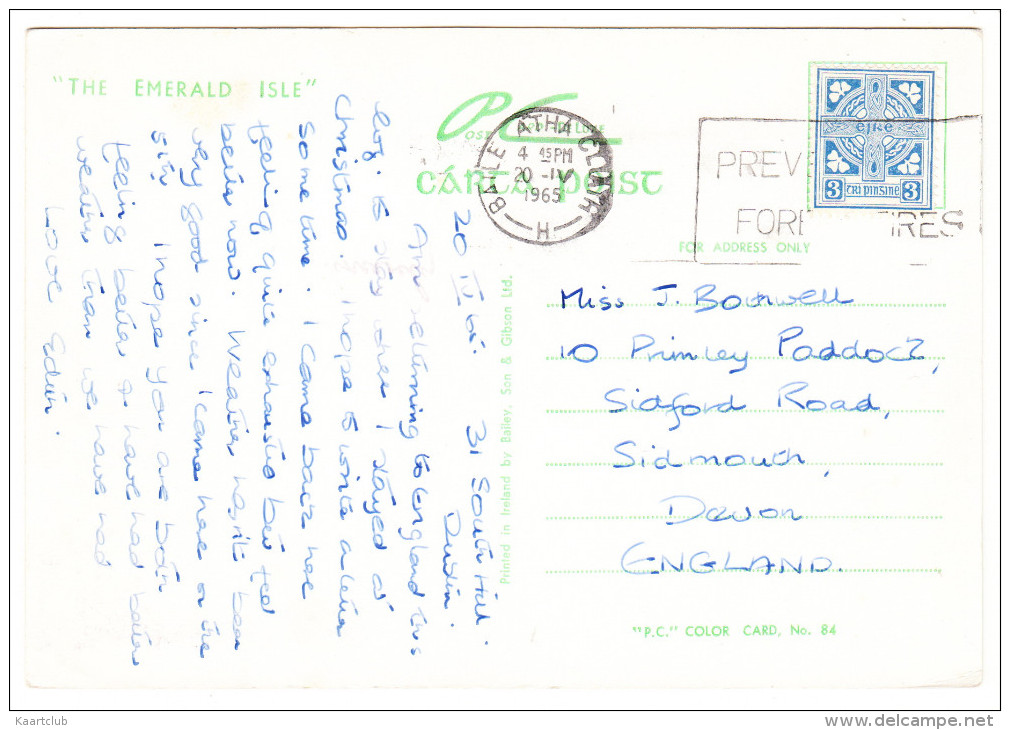 "THE EMERALD ISLE"
CÁRTA POIST
BAILE ATHA CLIATH
4 45PM
20 -IV
1965
H
PREVE
FORE FIRES
éire
3 3
FOR ADDRESS ONLY
31 South Hill.
Dublin.
20 IV 65.
Am returning to England this
to stay where I stayed at
Christmas. I hope to write a letter
some time. I came back here
feeling quite exhausted but feel
better now. Weather hasn't been
very good since I came here on the
5th I hope you are both
feeling better & have had better
weather than we have had
Love Edith.
Printed in Ireland by Bailey, Son & Gibson Ltd.
Miss J.
10 Primley Paddock,
Sidford Road,
Sidmouth,
Devon
ENGLAND.
"P.C." COLOR CARD, No. 84
Kaartclub
www.delcampe.net